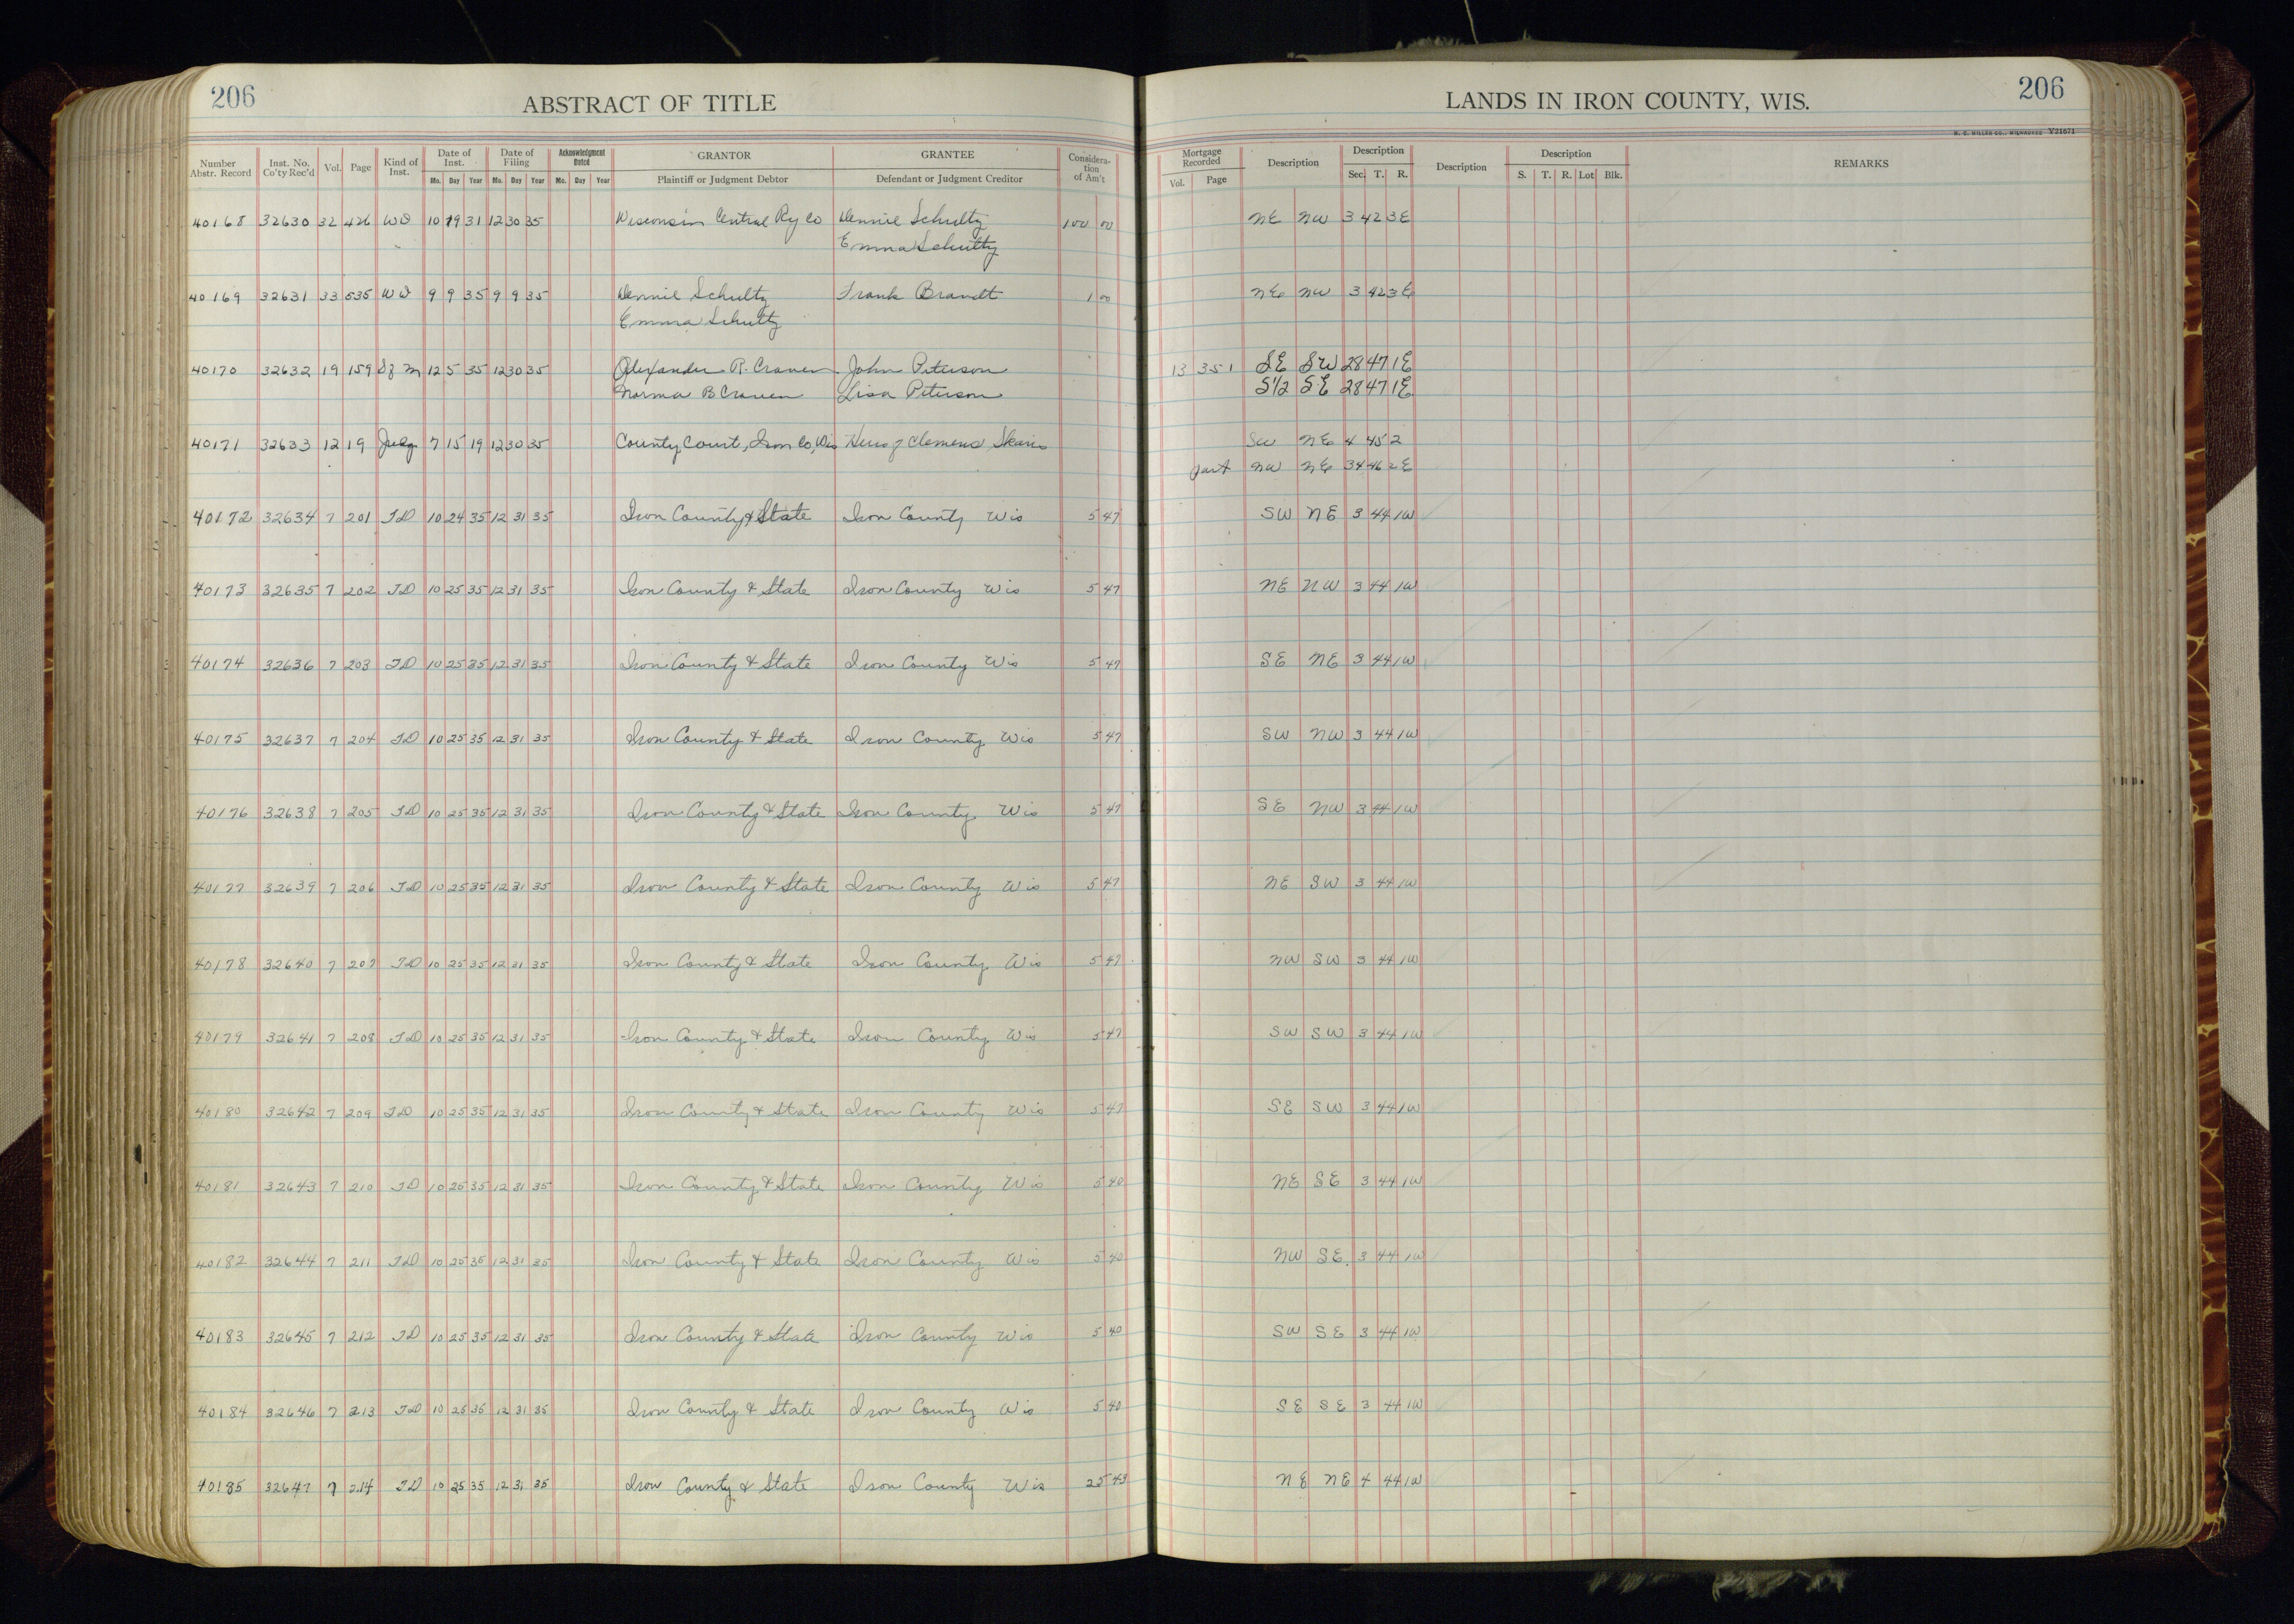 206
ABSTRACT OF TITLE
LANDS IN IRON COUNTY, WIS.
206
H. C. MILLER CO., MILWAUKEE Y21671
Number Abstr. Record | Inst. No. Co'ty Rec'd | Vol. | Page | Kind of Inst. | Date of Inst. Mo. Day Year | Date of Filing Mo. Day Year | Acknowledgment Dated Mo. Day Year | GRANTOR Plaintiff or Judgment Debtor | GRANTEE Defendant or Judgment Creditor | Consideration of Am't | Mortgage Recorded Vol. Page | Description | Description Sec. T. R. | Description | Description S. T. R. Lot Blk. | REMARKS
40168 32630 32 426 WD 10 19 31 12 30 35 Wisconsin Central Ry Co Schultz 100 00 NE NW 3 42 3E
Emma Schultz
40169 32631 33 535 WD 9 9 35 9 9 35 Schultz Frank Brandt 1 00 NE NW 3 42 3E
Emma Schultz
40170 32632 19 159 12 5 35 12 30 35 Alexander R. Craven John Peterson 13 351 SE SW 28 47 1E
Norma B Craven Lisa Peterson S1/2 SE 28 47 1E
40171 32633 12 19 Judg 7 15 19 12 30 35 County Court, Iron Co, Wis Heirs of Clemens SW NE 4 45 2
part NW NE 34 46 2E
40172 32634 7 201 TD 10 24 35 12 31 35 Iron County & State Iron County Wis 5 47 SW NE 3 44 1W
40173 32635 7 202 TD 10 25 35 12 31 35 Iron County & State Iron County Wis 5 47 NE NW 3 44 1W
40174 32636 7 203 TD 10 25 35 12 31 35 Iron County & State Iron County Wis 5 47 SE NE 3 44 1W
40175 32637 7 204 TD 10 25 35 12 31 35 Iron County & State Iron County Wis 5 47 SW NW 3 44 1W
40176 32638 7 205 TD 10 25 35 12 31 35 Iron County & State Iron County Wis 5 47 SE NW 3 44 1W
40177 32639 7 206 TD 10 25 35 12 31 35 Iron County & State Iron County Wis 5 47 NE SW 3 44 1W
40178 32640 7 207 TD 10 25 35 12 31 35 Iron County & State Iron County Wis 5 47 NW SW 3 44 1W
40179 32641 7 208 TD 10 25 35 12 31 35 Iron County & State Iron County Wis 5 47 SW SW 3 44 1W
40180 32642 7 209 TD 10 25 35 12 31 35 Iron County & State Iron County Wis 5 47 SE SW 3 44 1W
40181 32643 7 210 TD 10 25 35 12 31 35 Iron County & State Iron County Wis 5 40 NE SE 3 44 1W
40182 32644 7 211 TD 10 25 35 12 31 35 Iron County & State Iron County Wis 5 40 NW SE 3 44 1W
40183 32645 7 212 TD 10 25 35 12 31 35 Iron County & State Iron County Wis 5 40 SW SE 3 44 1W
40184 32646 7 213 TD 10 25 35 12 31 35 Iron County & State Iron County Wis 5 40 SE SE 3 44 1W
40185 32647 7 214 TD 10 25 35 12 31 35 Iron County & State Iron County Wis 25 43 NE NE 4 44 1W